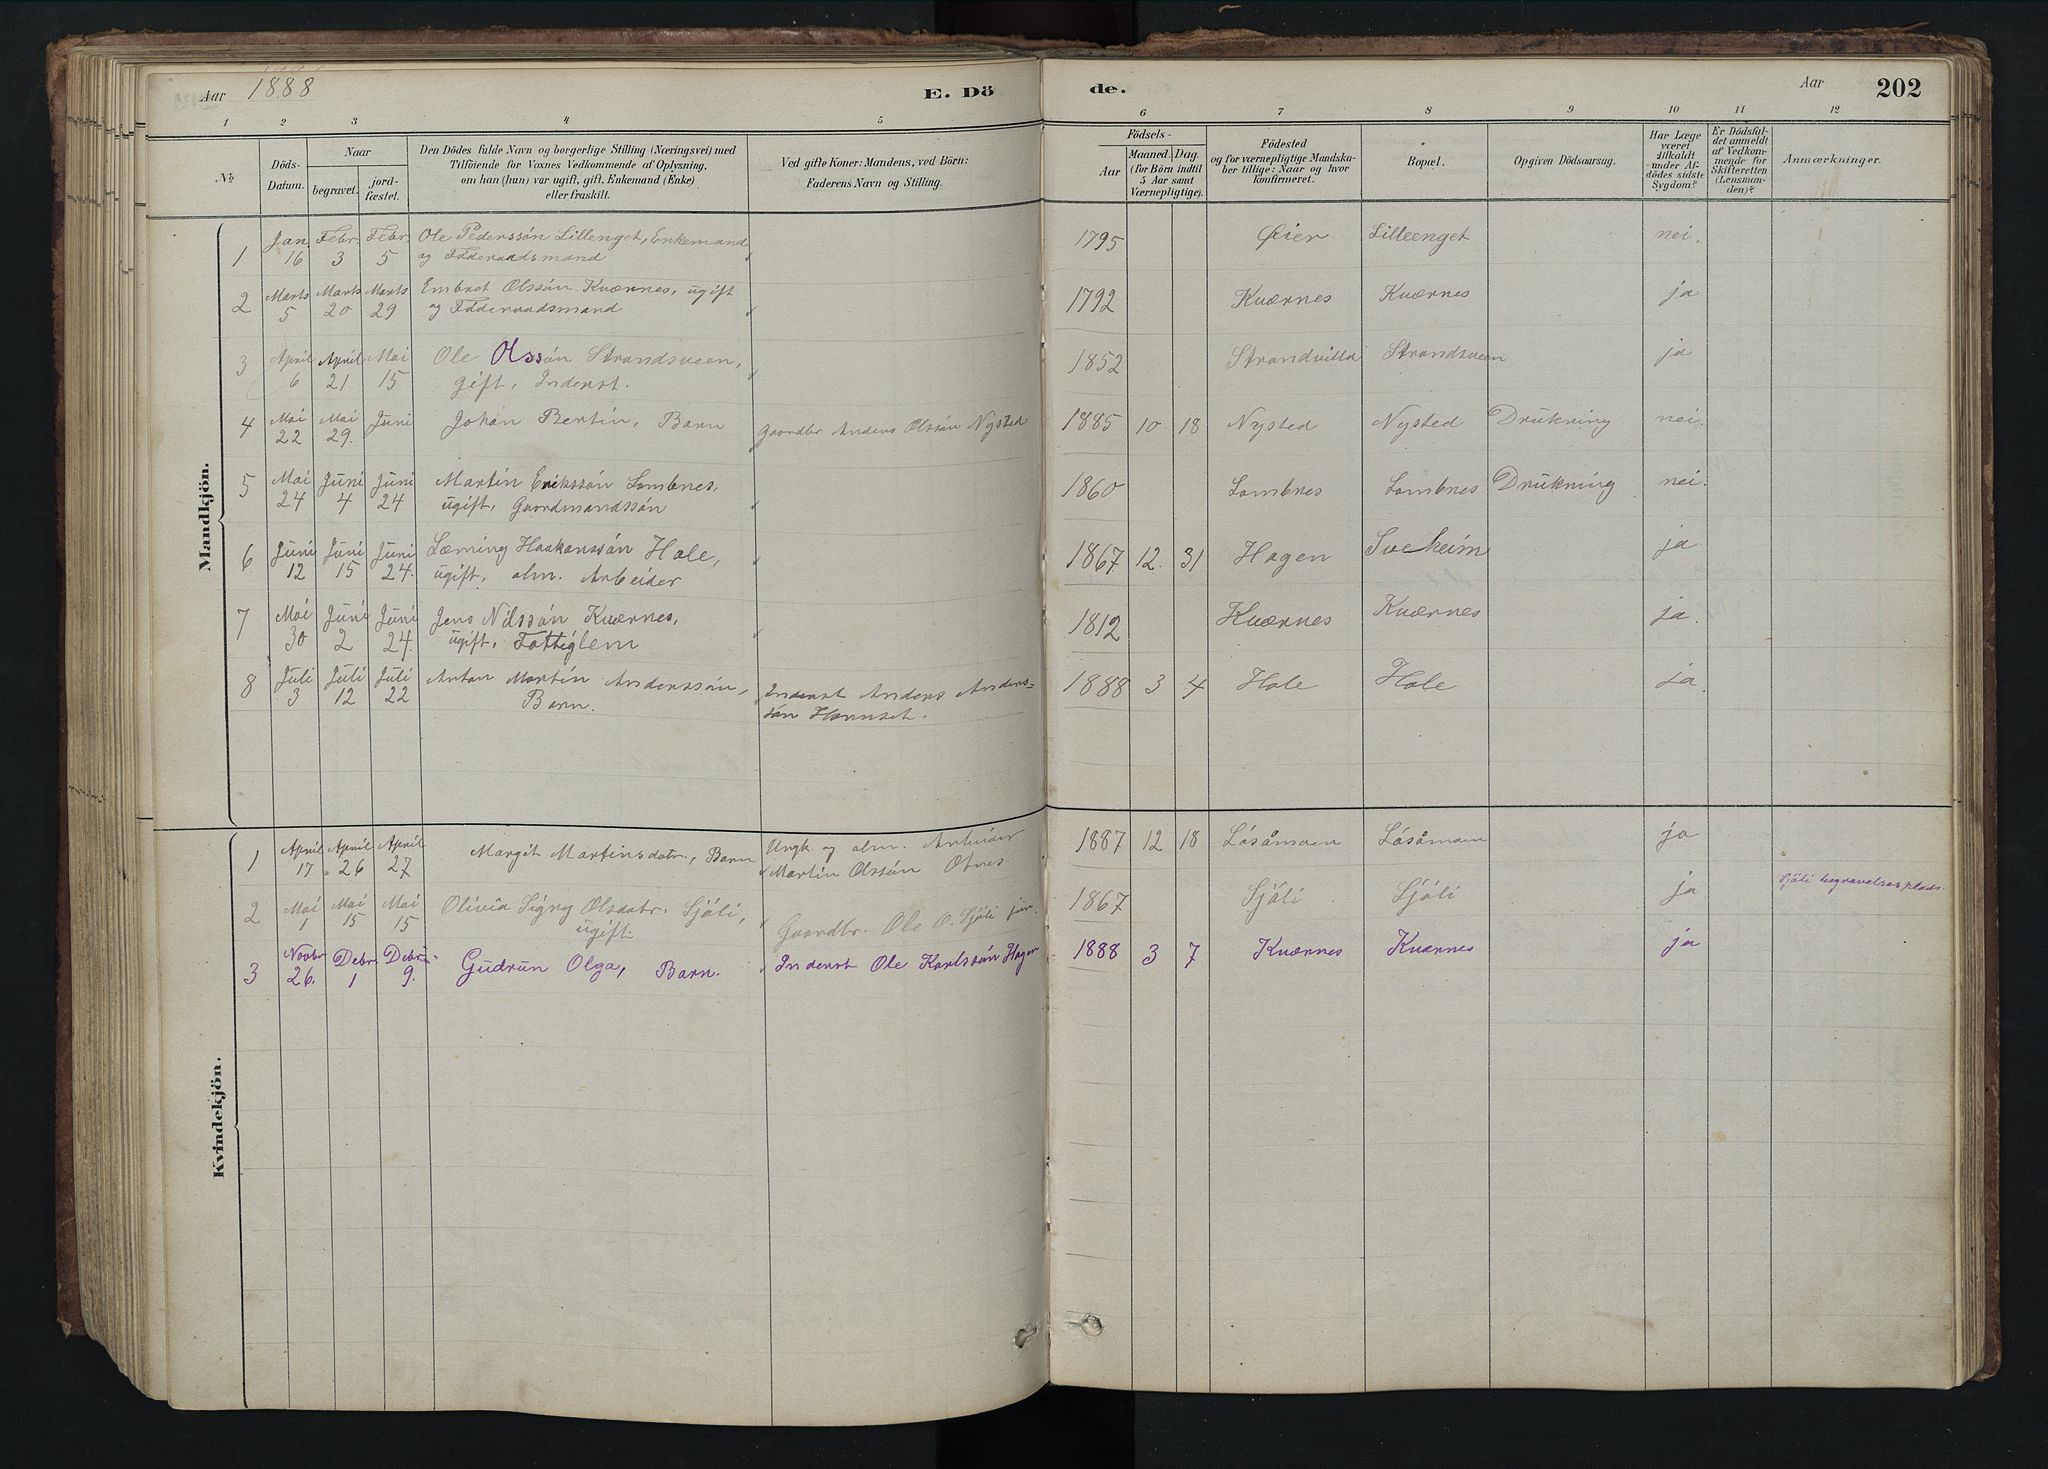 Aar 1888
E. Dö
de.
Aar
202
1 2 3 4 5 6 7 8 9 10 11 12
No
Döds-
Datum.
Naar
begravet.
jord-
fæstet.
Den Dödes fulde Navn og borgerlige Stilling (Næringsvei) med
Tilföiende for Voxnes Vedkommende af Oplysning,
om han (hun) var ugift, gift, Enkemand (Enke)
eller fraskilt.
Ved gifte Koner: Mandens, ved Börn:
Faderens Navn og Stilling.
Födsels-
Aar
Maaned. Dag.
(for Börn indtil
5 Aar samt
Værnepligtige).
Födested
og for værnepligtige Mandska-
ber tillige: Naar og hvor
konfirmeret.
Bopæl.
Opgiven Dödsaarsag.
Har Læge
været
tilkaldt
under Af-
dödes sidste
Sygdom?
Er Dödsfal-
det anmeldt
af Vedkom-
mende for
Skifteretten
(Lensman-
den)?
Anmærkninger.
Mandkjön.
1 Jan. 16 Febr. 3 Febr. 5 Ole Pederssön Lillenget, Enkemand
og Föderaadsmand
1795 Øier Lilleenget nei.
2 Marts 5 Marts 20 Marts 29 Embret Olssön Kværnes, ugift
og Föderaadsmand
1792 Kværnes Kværnes ja
3 April 6 April 21 Mai 15 Ole Olssön Strandsveen,
gift, Inderst.
1852 Strandvilla Strandsveen ja
4 Mai 22 Mai 29. Juni Johan Bertin, Barn Gaardbr Anders Olssön Nysted
1885 10 18 Nysted Nysted Drukning nei.
5 Mai 24 Juni 4 Juni 24 Martin Erikssön Lombnes,
ugift, Gaardmandssön
1860 Lombnes Lombnes Drukning nei.
6 Juni 12 Juni 15 Juni 24. Læming Haakonssön Hole,
ugift, alm. Arbeider
1867 12. 31 Hagen Sveheim ja
7 Mai 30 Juni 2 Juni 24. Jens Nilssön Kværnes,
ugift, Fattiglem
1812 Kværnes Kværnes ja.
8 Juli 3 Juli 12 Juli 22 Anton Martin Anderssön,
Barn.
Inderst Anders Anders=
sön Hornset.
1888 3 4 Hole Hole ja.
Kvindekjön.
1 April 17 April 26 April 27 Margit Martinsdatr., Barn
Ungk. og alm. Arbeider
Martin Olssön Otnes.
1887 12 18 Lösåmoen Lösåmoen ja
2 Mai 1 Mai 15 Mai 15 Olivia Signy Olsdatr. Sjöli,
ugift.
Gaardbr. Ole O. Sjöli jun.
1867 Sjöli Sjöli ja Sjöli begravelsesplads.
3 Novbr 26. Debr. 1 Debr. 9. Gudrun Olga, Barn. Inderst Ole Karlssön Hagen
1888 3 7 Kværnes Kværnes ja